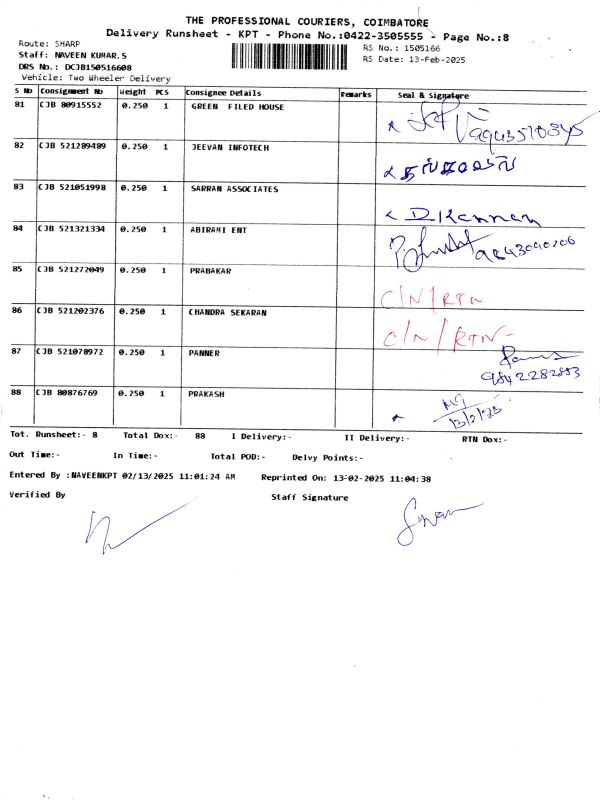 THE PROFESSIONAL COURIERS, COIMBATORE
Delivery Runsheet - KPT - Phone No.:0422-3505555 - Page No.:8
Route: SHARP
RS No.: 1505166
Staff: NAVEEN KUMAR.S
RS Date: 13-Feb-2025
DRS No.: DCJB150516608
Vehicle: Two Wheeler Delivery
S No Consignment No Weight PCS Consignee Details Remarks Seal & Signature
81 CJB 80915552 0.250 1 GREEN FILED HOUSE
82 CJB 521289489 0.250 1 JEEVAN INFOTECH
83 CJB 521051998 0.250 1 SARRAN ASSOCIATES
D. Kannan
84 CJB 521321334 0.250 1 ABIRAMI ENT
85 CJB 521272049 0.250 1 PRABAKAR
C/N/RTN
86 CJB 521202376 0.250 1 CHANDRA SEKARAN
C/N/RTN
87 CJB 521078972 0.250 1 PANNER
9842282853
88 CJB 80876769 0.250 1 PRAKASH
13/2/25
Tot. Runsheet:- 8 Total Dox:- 88 I Delivery:- II Delivery:- RTN Dox:-
Out Time:- In Time:- Total POD:- Delvy Points:-
Entered By :NAVEENKPT 02/13/2025 11:01:24 AM Reprinted On: 13-02-2025 11:04:38
Verified By Staff Signature